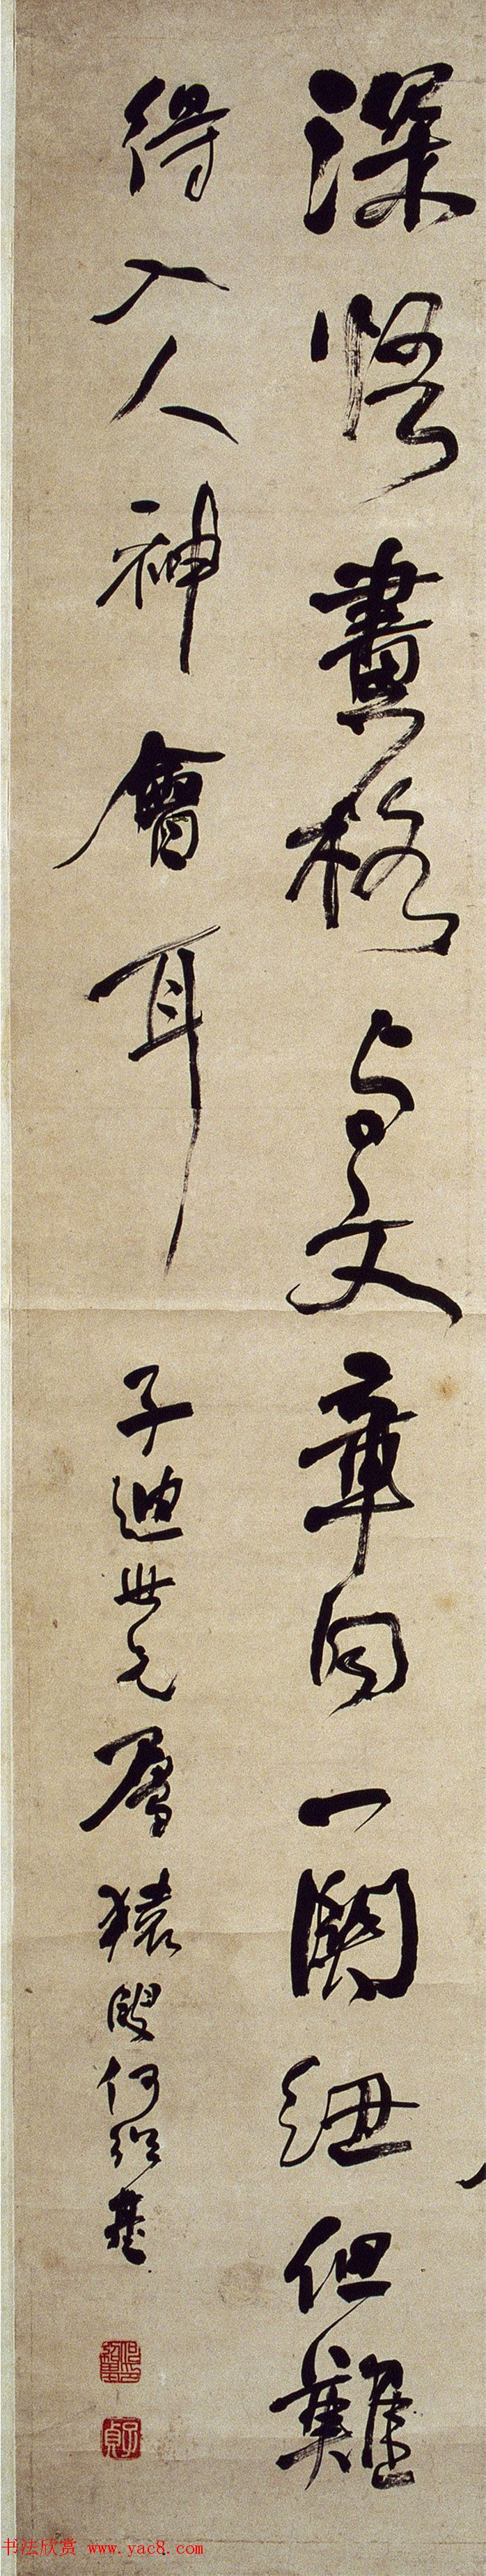 深悟畫格与文章同一關紐但難
得入人神會耳
子迪世兄屬 猿叟何紹基
子貞
书法欣赏 www.yac8.com